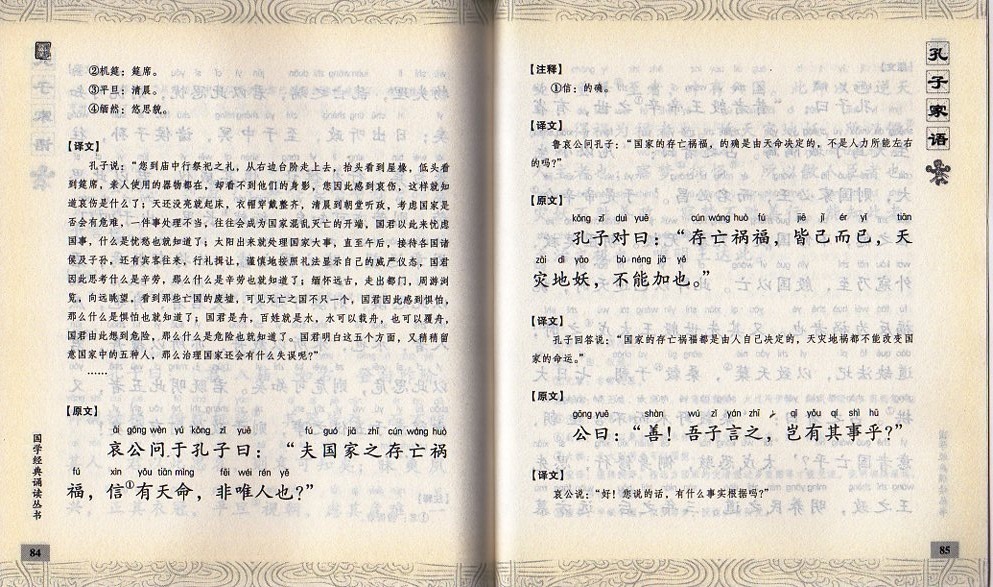 ②机筵：筵席。
③平旦：清晨。
④缅然：悠思貌。
【译文】
孔子说：“您到庙中行祭祀之礼，从右边台阶走上去，抬头看到屋椽，低头看
到筵席，亲人使用的器物都在，却看不到他们的身影，您因此感到哀伤，这样就知
道哀伤是什么了；天还没亮就起床，衣帽穿戴整齐，清晨到朝堂听政，考虑国家是
否会有危难，一件事处理不当，往往会成为国家混乱灭亡的开端，国君以此来忧虑
国事，什么是忧愁也就知道了；太阳出来就处理国家大事，直至午后，接待各国诸
侯及子孙，还有宾客往来，行礼揖让，谨慎地按照礼法显示自己的威严仪态，国君
因此思考什么是辛劳，那么什么是辛劳也就知道了；缅怀远古，走出都门，周游浏
览，向远眺望，看到那些亡国的废墟，可见灭亡之国不只一个，国君因此感到惧怕，
那么什么是惧怕也就知道了；国君是舟，百姓就是水，水可以载舟，也可以覆舟，
国君由此想到危险，那么什么是危险也就知道了。国君明白这五个方面，又稍稍留
意国家中的五种人，那么治理国家还会有什么失误呢？”
……
【原文】
āi gōng wèn yú kǒng zǐ yuē fú guó jiā zhī cún wáng huò
哀公问于孔子曰：“夫国家之存亡祸
fú xìn yǒu tiān mìng fēi wéi rén yě
福，信①有天命，非唯人也？”
国学经典诵读丛书
84
孔子家语
【注释】
①信：的确。
【译文】
鲁哀公问孔子：“国家的存亡祸福，的确是由天命决定的，不是人力所能左右
的吗？”
【原文】
kǒng zǐ duì yuē cún wáng huò fú jiē jǐ ér yǐ tiān
孔子对曰：“存亡祸福，皆己而已，天
zāi dì yāo bù néng jiā yě
灾地妖，不能加也。”
【译文】
孔子回答说：“国家的存亡祸福都是由人自己决定的，天灾地祸都不能改变国
家的命运。”
【原文】
gōng yuē shàn wú zǐ yán zhī qǐ yǒu qí shì hū
公曰：“善！吾子言之，岂有其事乎？”
【译文】
哀公说：“好！您说的话，有什么事实根据吗？”
85